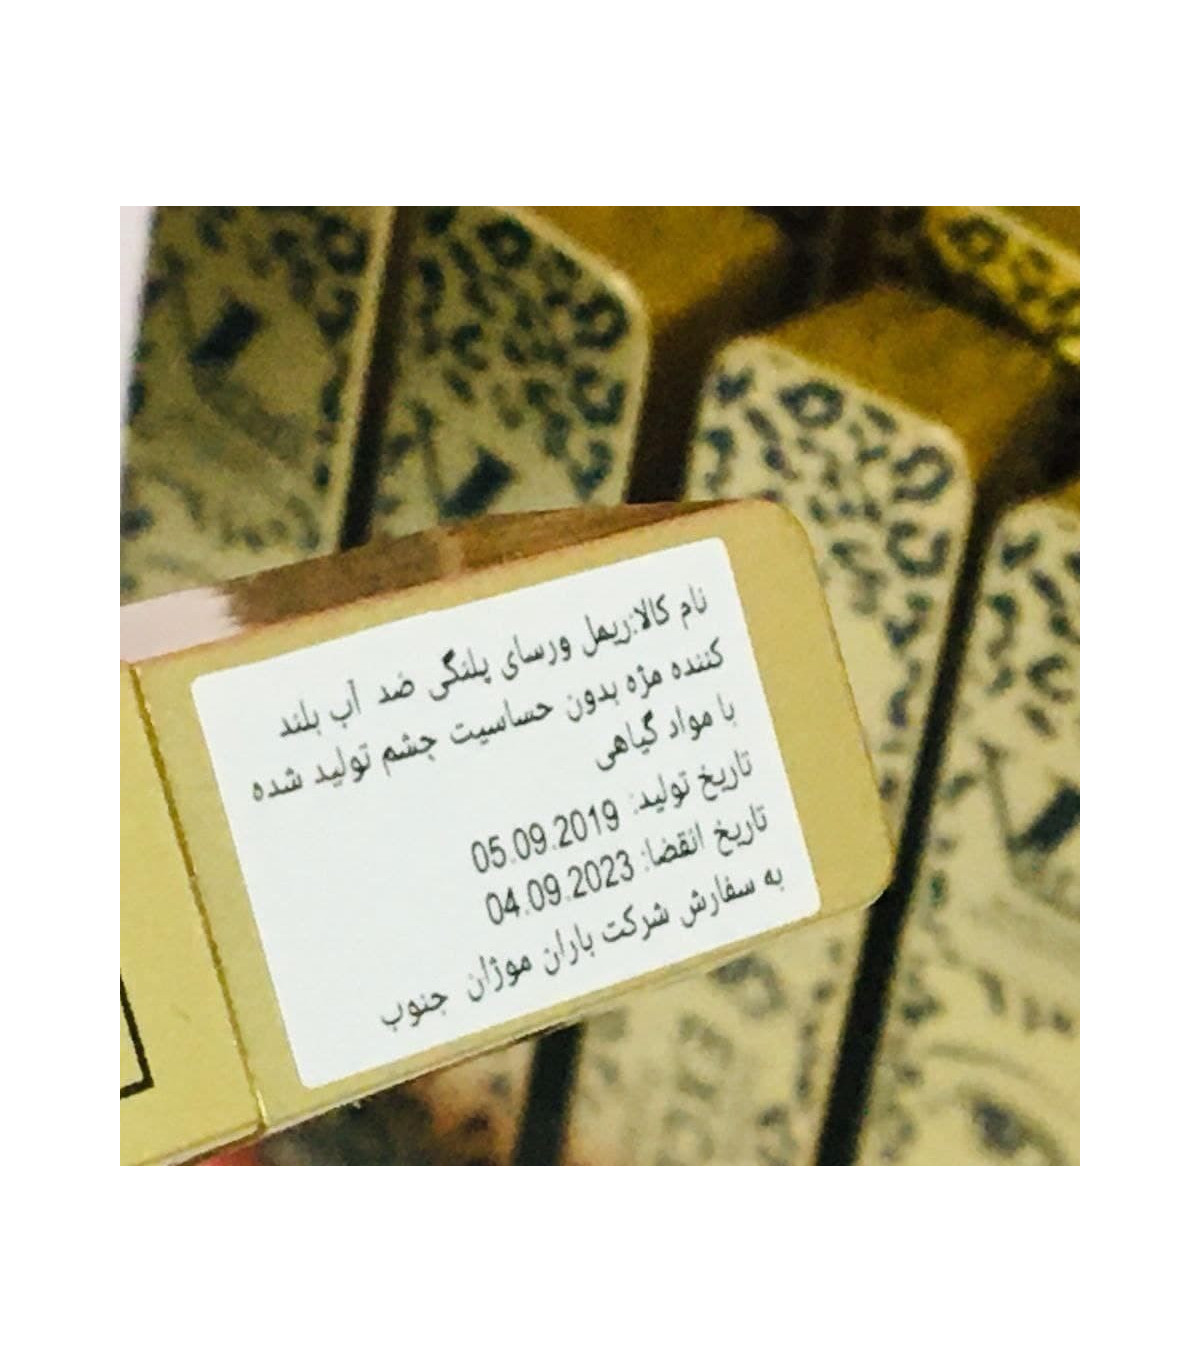 نام کالا:ریمل ورسای پلنگی ضد آب بلند
کننده مژه بدون حساسیت جشم تولید شده
با مواد گیاهی
تاریخ تولید: 05.09.2019
تاریخ انقضا: 04.09.2023
به سفارش شرکت باران موژان جنوب